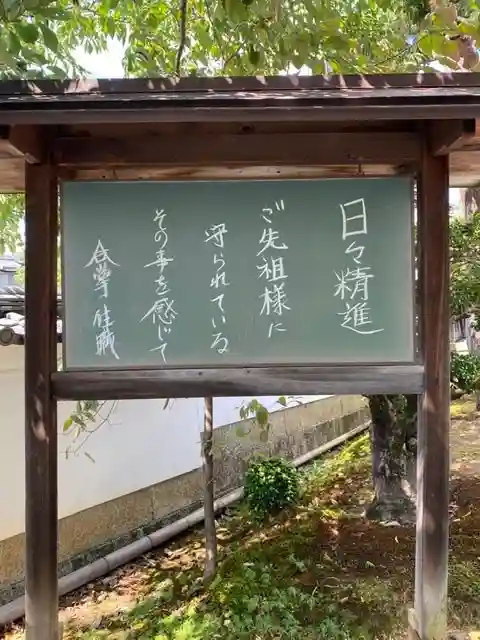 日々精進
ご先祖様に
守られている
その事を感じて
合掌 住職